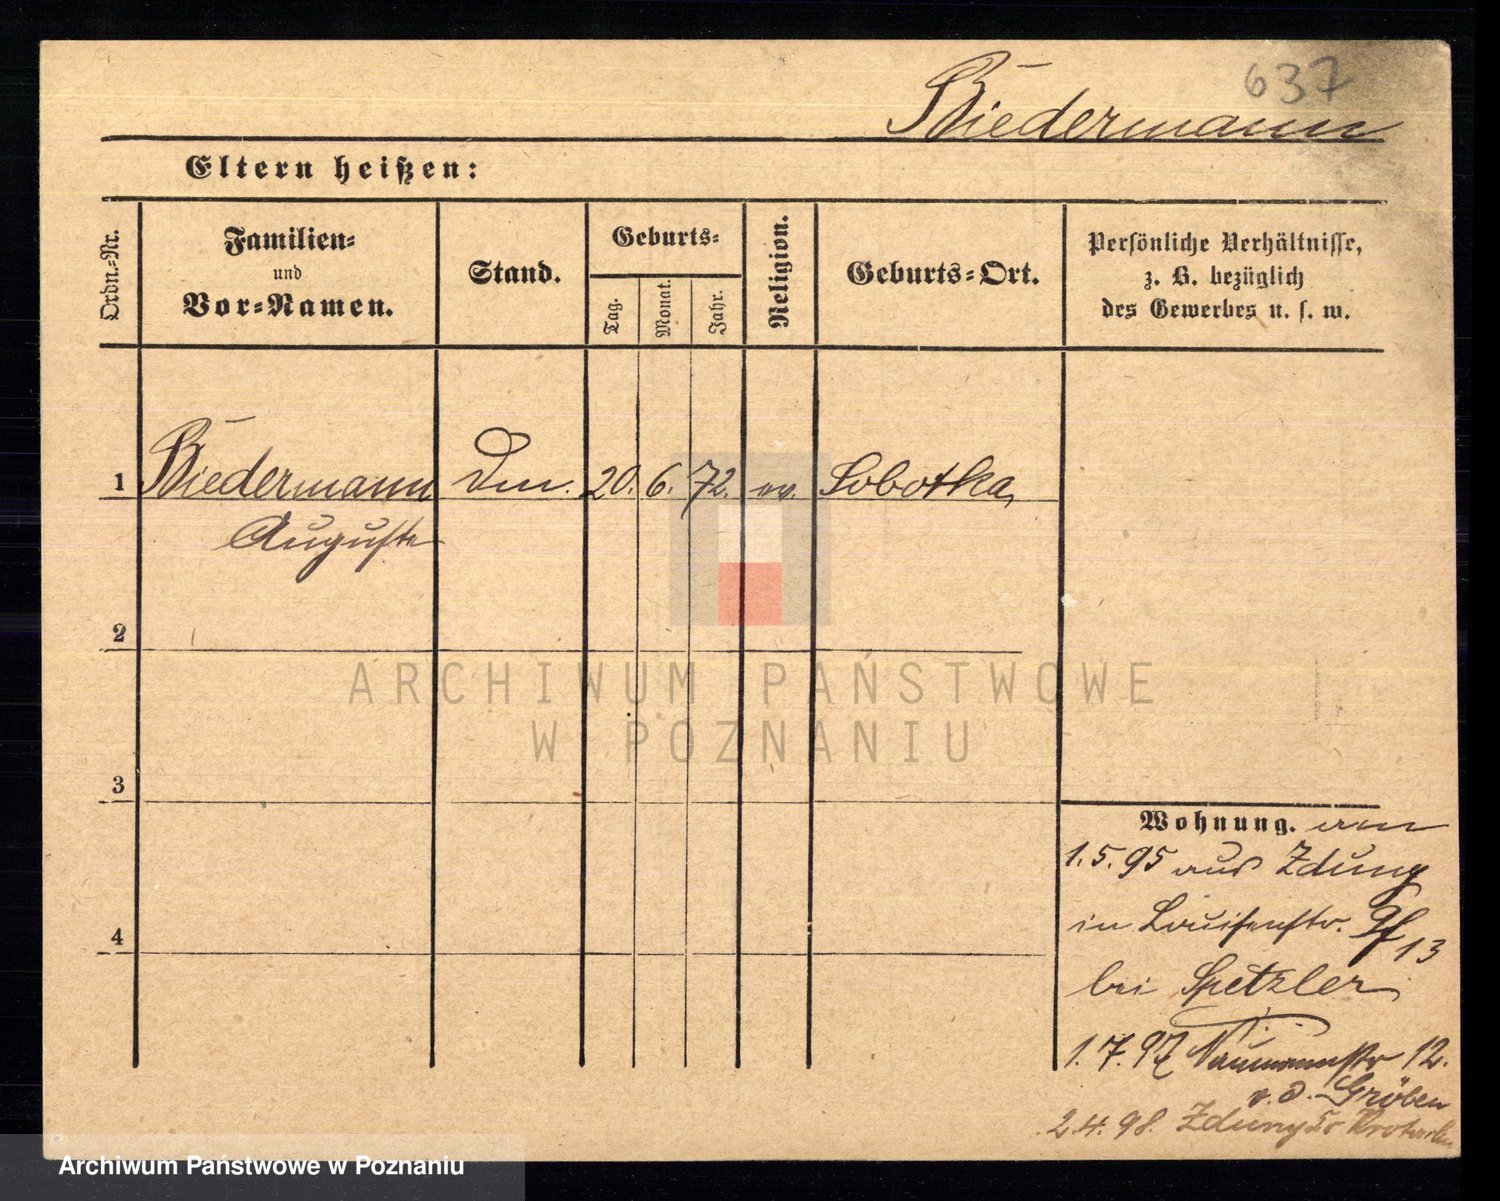 637
Biedermann
Eltern heißen:
Ordn.-Nr.
Familien-
und
Vor-Namen.
Stand.
Geburts-
Tag.
Monat.
Jahr.
Religion.
Geburts-Ort.
Persönliche Verhältnisse,
z. B. bezüglich
des Gewerbes u. s. w.
1 Biedermann 20. 6. 72. ev. Sobotka
Auguste
2
3
4
Wohnung. am
1.5.95 aus Zduny
in Louisenstr. 13
bei Spetzler
1.7.97 Naumannstr 12.
v. d. Gröben
2.4.98. Zduny Kr Krotoschin
ARCHIWUM PAŃSTWOWE
W POZNANIU
Archiwum Państwowe w Poznaniu